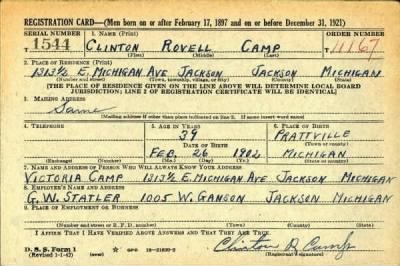 REGISTRATION CARD—(Men born on or after February 17, 1897 and on or before December 31, 1921)
SERIAL NUMBER 1. NAME (Print) ORDER NUMBER
1544 CLINTON ROVELL CAMP 11167
(First) (Middle) (Last)
2. PLACE OF RESIDENCE (Print)
1313½ E. MICHIGAN AVE JACKSON JACKSON MICHIGAN
(Number and street) (Town, township, village, or city) (County) (State)
[THE PLACE OF RESIDENCE GIVEN ON THE LINE ABOVE WILL DETERMINE LOCAL BOARD
JURISDICTION; LINE 2 OF REGISTRATION CERTIFICATE WILL BE IDENTICAL]
3. MAILING ADDRESS
Same
[Mailing address if other than place indicated on line 2. If same insert word same]
4. TELEPHONE 5. AGE IN YEARS 6. PLACE OF BIRTH
39 PRATTVILLE
DATE OF BIRTH (Town or county)
FEB. 26 1902 MICHIGAN
(Exchange) (Number) (Mo.) (Day) (Yr.) (State or country)
7. NAME AND ADDRESS OF PERSON WHO WILL ALWAYS KNOW YOUR ADDRESS
VICTORIA CAMP 1313½ E. MICHIGAN AVE JACKSON MICHIGAN
8. EMPLOYER'S NAME AND ADDRESS
G. W. STATLER 1005 W. GANSON JACKSON MICHIGAN
9. PLACE OF EMPLOYMENT OR BUSINESS
(Number and street or R. F. D. number) (Town) (County) (State)
I AFFIRM THAT I HAVE VERIFIED ABOVE ANSWERS AND THAT THEY ARE TRUE.
D. S. S. Form 1
(Revised 1-1-42) GPO 16—21630-2 Clinton R. Camp
(Registrant's signature)